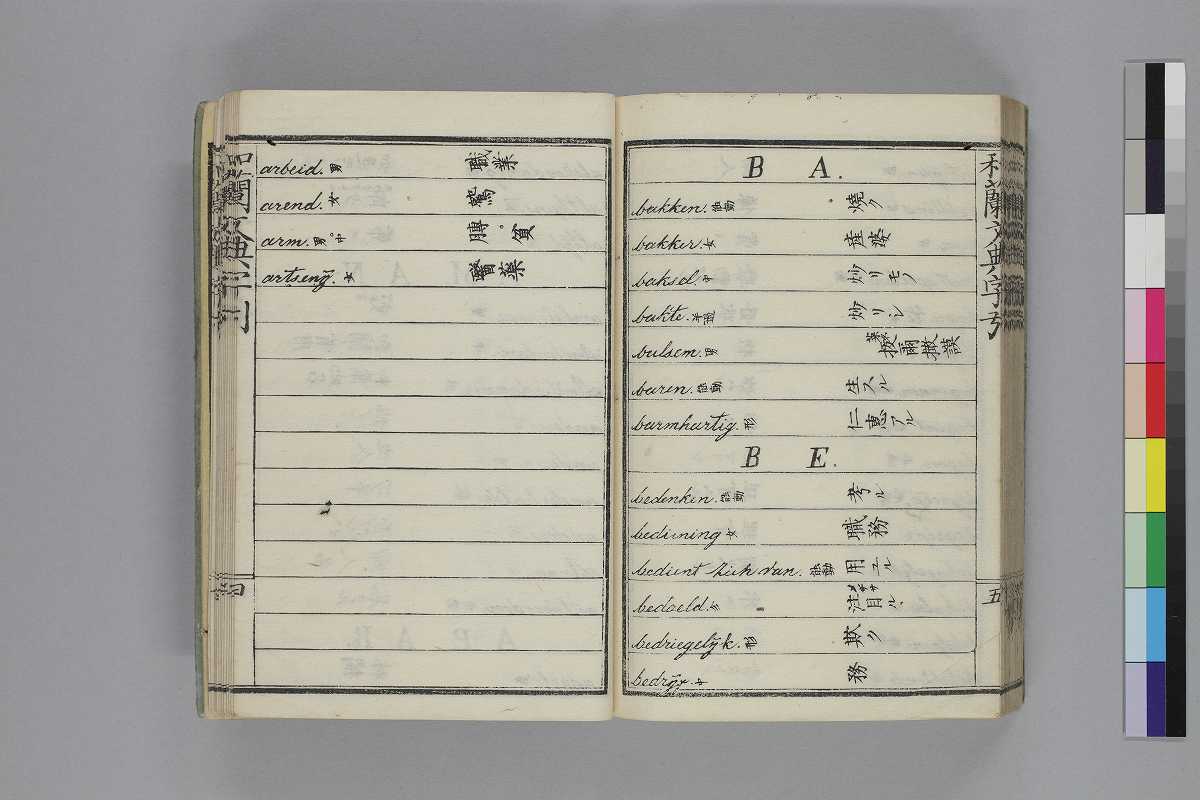 arbeid. 男 職業
arend. 女 鷲
arm. 男 中 膊 貧
artsenij. 女 醫薬
B A.
bakken. 他動 焼ク
bakker. 女 産婆
baksel. 中 炒リモノ
bakte. 炒リシ
bulsem. 男 撥爾撒謨
baren. 他動 生スル
barmhartig. 形 仁惠アル
B E.
bedenken. 他動 考ル
bediening 女 職務
bedient zich van. 他動 用ユル
bedoeld. 注目
bedriegelijk. 形 欺ク
bedrijf. 中 務
和蘭文典字引
五